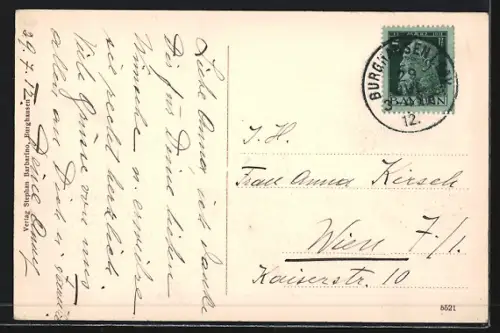 Liebe Anna, ich danke
Dir für Deine lieben
Wünsche u. erwidre
sie recht herzlich.
Viele Grüsse von uns
allen an Dich u.
29.7.12.
Verlag Stephan Barbarino, Burghausen
BURGHAUSEN
29
12.
BAYERN
I. H.
Frau Anna Kirsch
Wien 7/1.
Kaiserstr. 10
5521